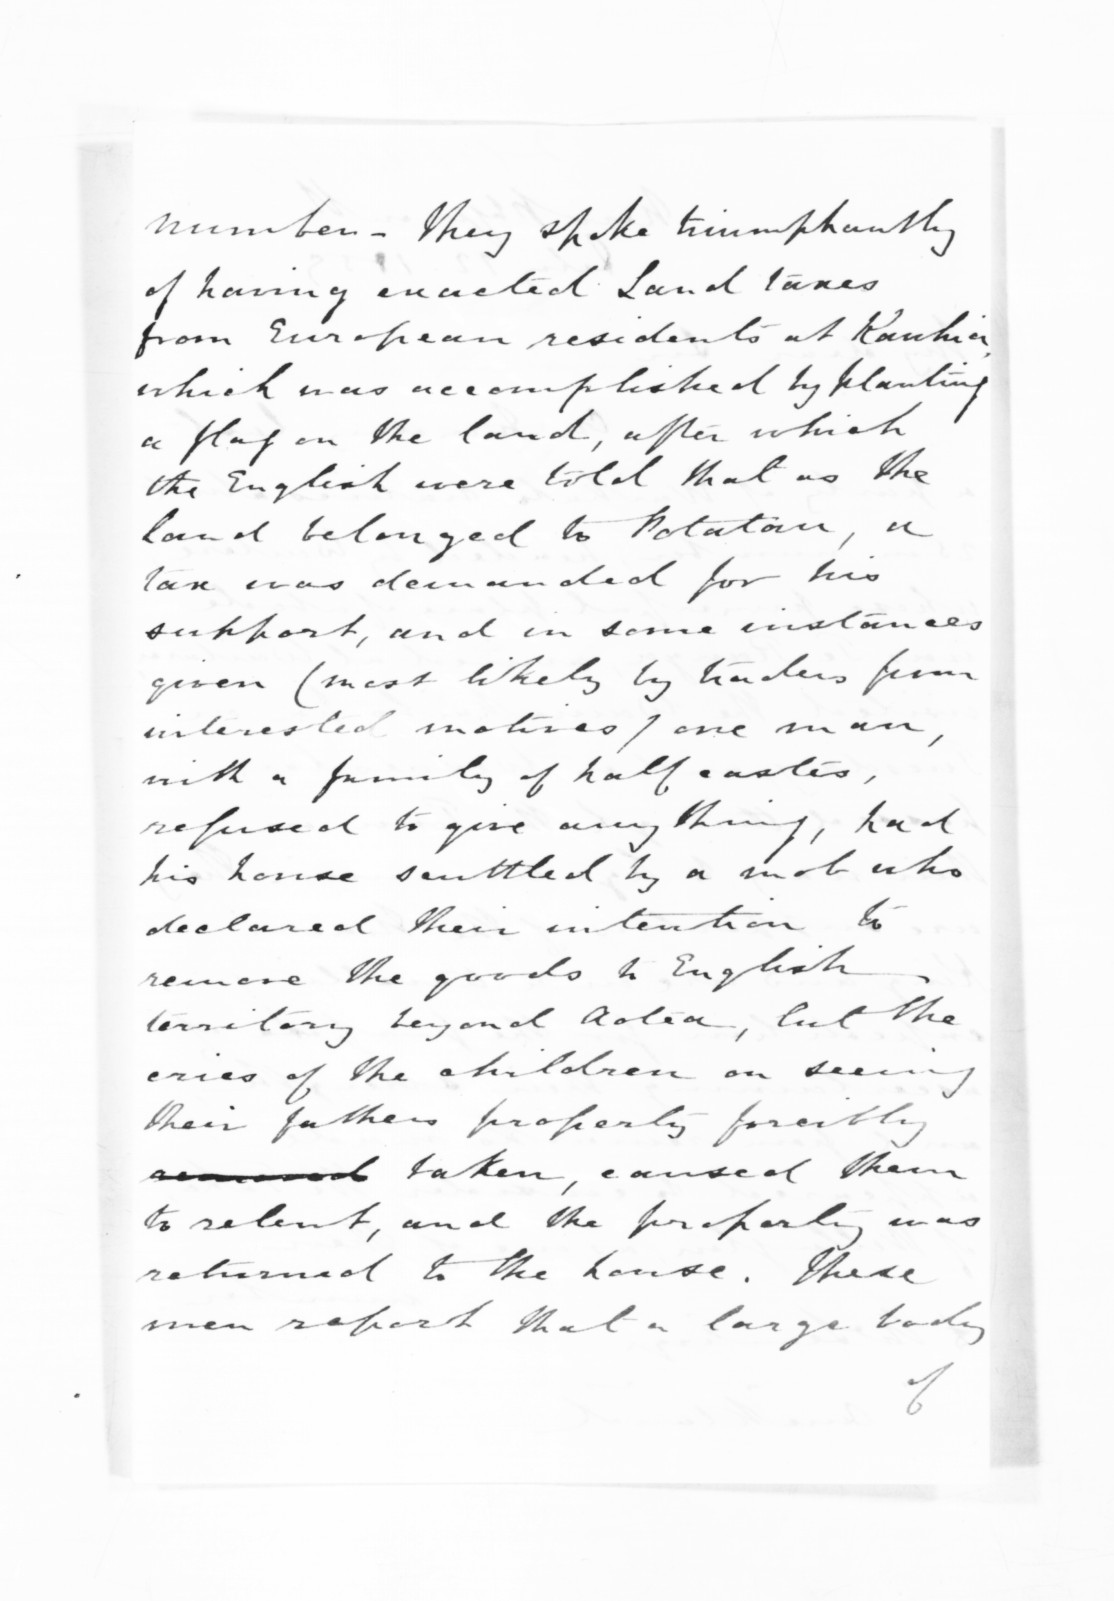 number – They spoke triumphantly
of having exacted Land taxes
from European residents at Kawhia,
which was accomplished by planting
a flag on the land, after which
the English were told that as the
land belonged to Potatau, a
tax was demanded for his
support, and in some instances
given (most likely by traders from
interested motives) one man,
with a family of half castes,
refused to give anything, had
his house scuttled by a mob who
declared their intention to
remove the goods to English
territory beyond Aotea, but the
cries of the children on seeing
their fathers property forcibly
removed taken, caused them
to relent, and the property was
returned to the house. These
men report that a large body
of